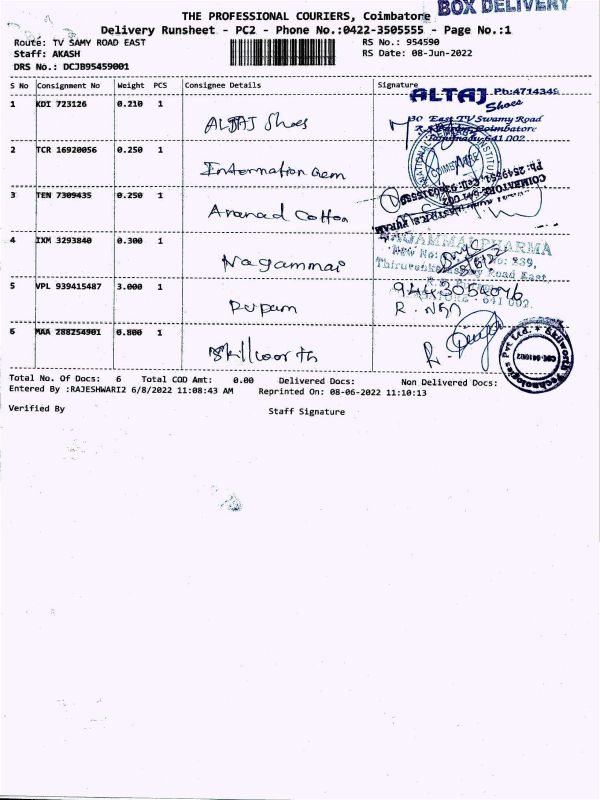 THE PROFESSIONAL COURIERS, Coimbatore
BOX DELIVERY
Delivery Runsheet - PC2 - Phone No.:0422-3505555 - Page No.:1
Route: TV SAMY ROAD EAST
RS No.: 954590
Staff: AKASH
RS Date: 08-Jun-2022
DRS No.: DCJB95459001
S No Consignment No Weight PCS Consignee Details Signature
ALTAJ Ph:4714346
Shoes
1 KDI 723126 0.210 1
ALTAJ Shoes
30 East TV Swamy Road
Coimbatore
641 002.
2 TCR 16920056 0.250 1
Internation Gem
3 TEN 7309435 0.250 1
Ananad Cotton
4 IXM 3293840 0.300 1
Nagammai
NAGAMMAI PHARMA
New No: No: 239,
Road East,
641 002.
5 VPL 939415487 3.000 1
Rupam
R.
6 MAA 288254901 0.800 1
Skillworth
R.
Skilworth Technologies Pvt Ltd.
Total No. Of Docs: 6 Total COD Amt: 0.00 Delivered Docs: Non Delivered Docs:
Entered By :RAJESHWARI2 6/8/2022 11:08:43 AM Reprinted On: 08-06-2022 11:10:13
Verified By
Staff Signature